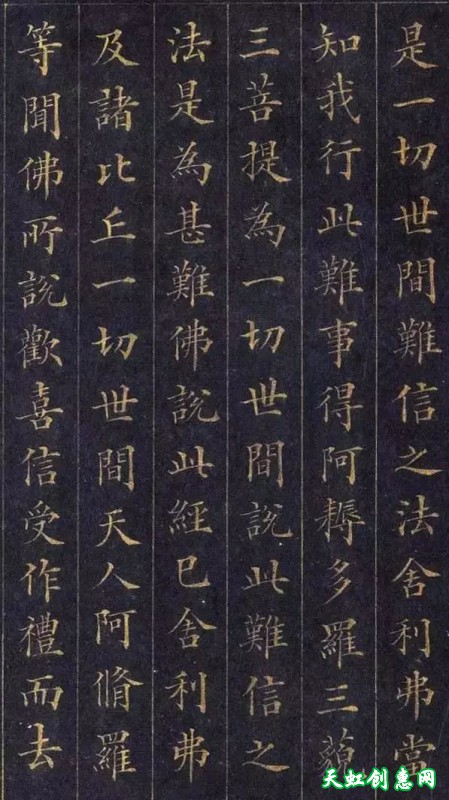 是一切世間難信之法舍利弗當
知我行此難事得阿耨多羅三藐
三菩提為一切世間說此難信之
法是為甚難佛說此經已舍利弗
及諸比丘一切世間天人阿脩羅
等聞佛所說歡喜信受作禮而去
天虹创惠网